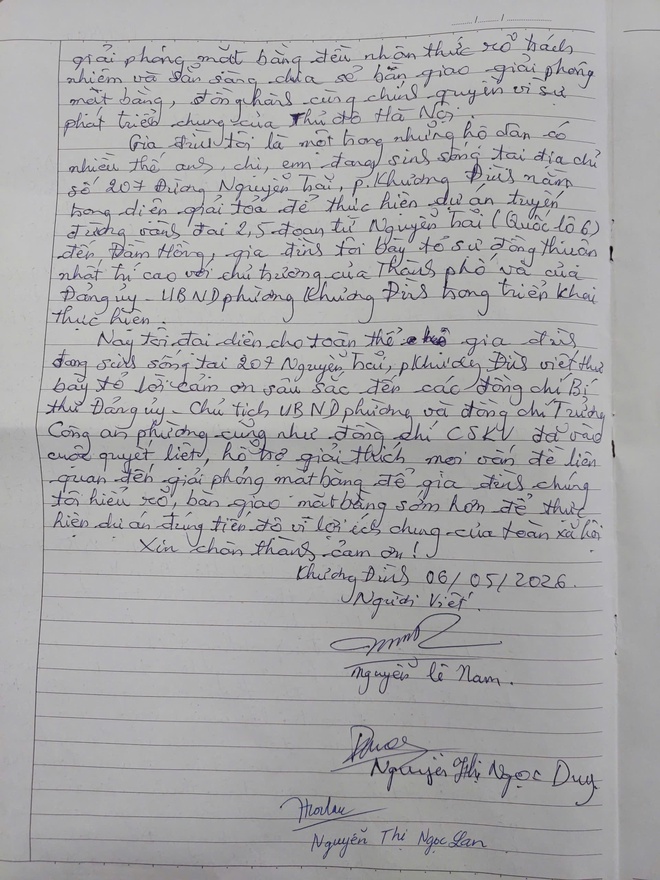 giải phóng mặt bằng đều nhận thức rõ trách
nhiệm và sẵn sàng chia sẻ bàn giao giải phóng
mặt bằng, đồng hành cùng chính quyền vì sự
phát triển chung của Thủ đô Hà Nội.
Gia đình tôi là một trong những hộ dân có
nhiều thế anh, chị, em đang sinh sống tại địa chỉ
số 207 Đường Nguyễn Trãi, p. Khương Đình nằm
trong diện giải tỏa để thực hiện dự án tuyến
đường vành đai 2,5 đoạn từ Nguyễn Trãi (Quốc lộ 6)
đến Đầm Hồng, gia đình tôi bày tỏ sự đồng thuận
nhất trí cao với chủ trương của Thành phố và của
Đảng ủy - UBND phường Khương Đình trong triển khai
thực hiện.
Nay tôi đại diện cho toàn thể gia đình
đang sinh sống tại 207 Nguyễn Trãi, p Khương Đình viết thư
bày tỏ lời cảm ơn sâu sắc đến các đồng chí Bí
thư Đảng ủy - Chủ tịch UBND phường và đồng chí Trưởng
Công an phường cũng như đồng chí CSKV đã vào
cuộc quyết liệt, hỗ trợ giải thích mọi vấn đề liên
quan đến giải phóng mặt bằng để gia đình chúng
tôi hiểu rõ, bàn giao mặt bằng sớm hơn để thực
hiện dự án đúng tiến độ vì lợi ích chung của toàn xã hội
Xin chân thành cảm ơn!
Khương Đình 06/05/2026.
Người Viết.
Nguyễn lê Nam.
Nguyễn Thị Ngọc Duy
Nguyễn Thị Ngọc Lan